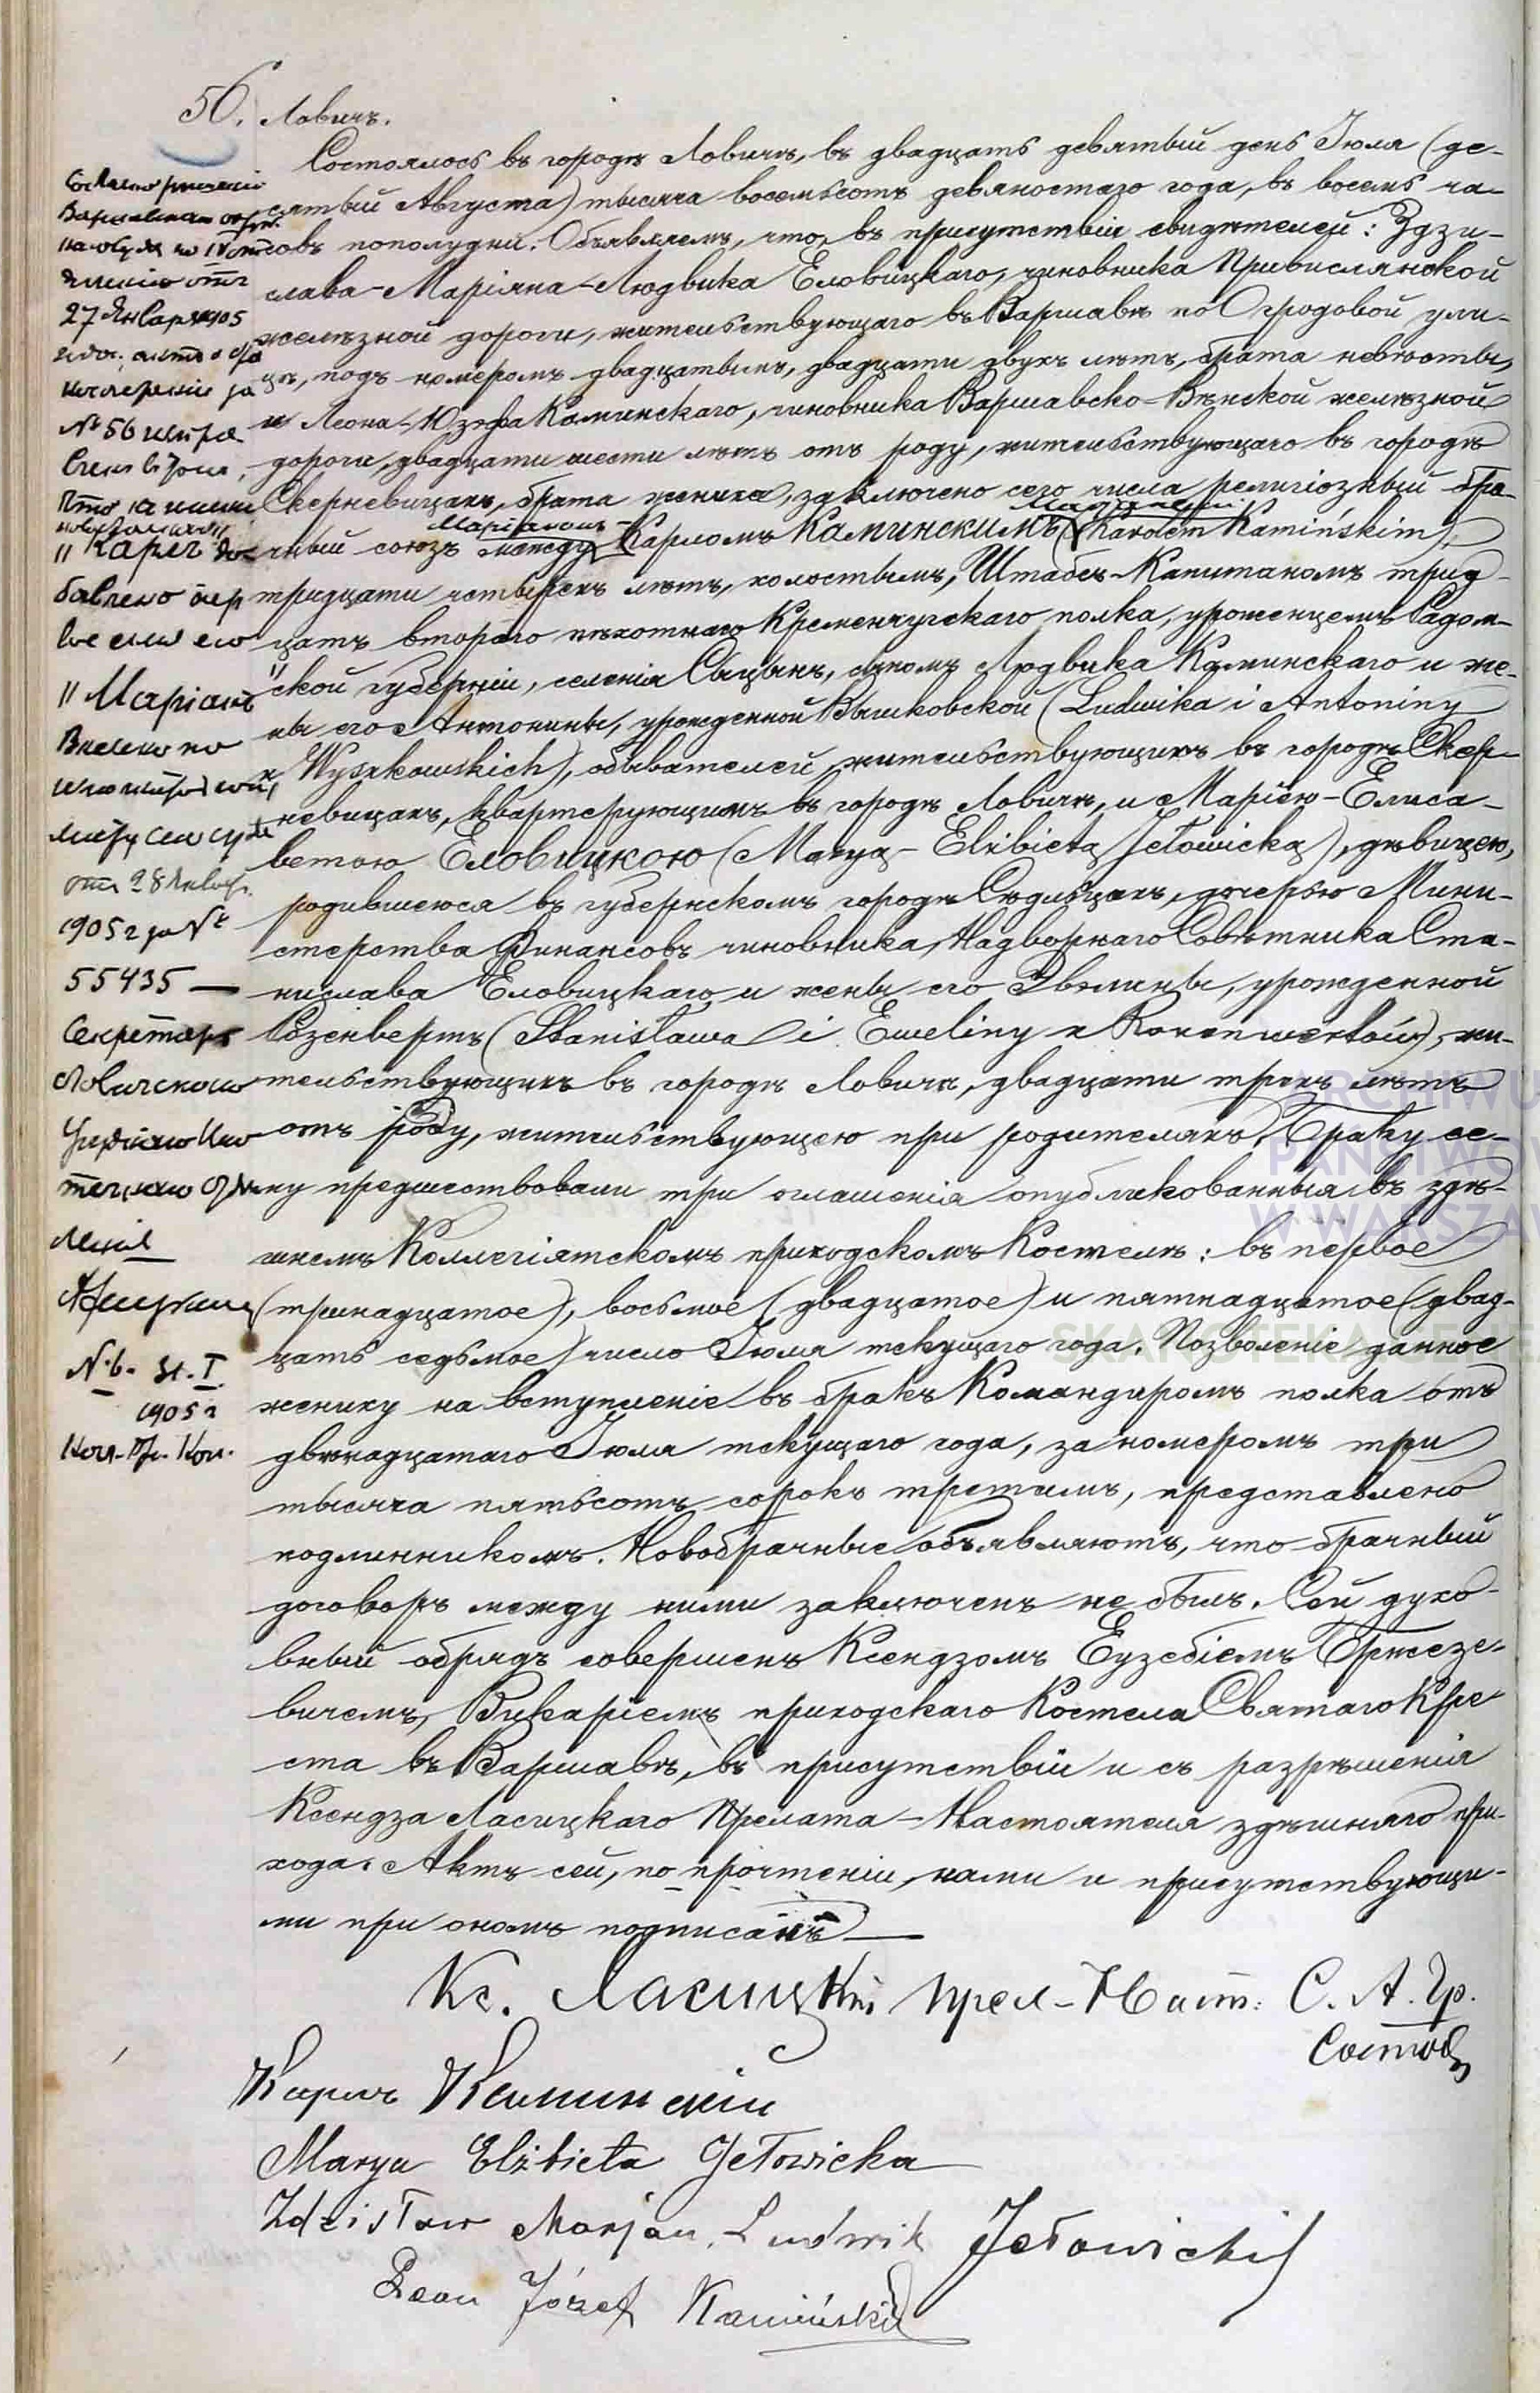 56. Ловичъ.
Состоялось въ городѣ Ловичѣ, въ двадцать девятый день Іюля (де-
сятый Августа) тысяча восемьсотъ девяностаго года, въ восемь ча-
совъ пополудни. Объявляемъ, что, въ присутствіи свидѣтелей: Здзи-
слава-Маріяна-Людвика Еловицкаго, чиновника Привислянской
желѣзной дороги, жительствующаго въ Варшавѣ по Огродовой ули-
цѣ, подъ номеромъ двадцатымъ, двадцати двухъ лѣтъ, брата невѣсты,
и Леона-Юзефа Каминскаго, чиновника Варшавско-Вѣнской желѣзной
дороги, двадцати шести лѣтъ отъ роду, жительствующаго въ городѣ
Скерневицахъ, брата жениха, заключено сего числа религіозный бра-
Маріаномъ-
чный союзъ между Карломъ Каминскимъ (Karolem Kamińskim),
тридцати четырехъ лѣтъ, холостымъ, Штабсъ-Капитаномъ трид-
цать втораго пѣхотнаго Кременчугскаго полка, уроженцемъ Радом-
ской губерніи, селенія Сыцынъ, сыномъ Людвика Каминскаго и же-
ны его Антонины, урожденной Вышковской (Ludwika i Antoniny
z Wyszkowskich), обывателей жительствующихъ въ городѣ Скер-
невицахъ, квартерующимъ въ городѣ Ловичѣ, и Маріею-Елиса-
ветою Еловицкою (Maryą-Elżbietą Jełowicką), дѣвицею,
родившеюся въ губернскомъ городѣ Сѣдльцахъ, дочерью Мини-
стерства Финансовъ чиновника, Надворнаго Совѣтника Ста-
нислава Еловицкаго и жены его Эвелины, урожденной
Розенвертъ (Stanisława i Eweliny z Rozenwertów), жи-
тельствующихъ въ городѣ Ловичѣ, двадцати трехъ лѣтъ
отъ роду, жительствующею при родителяхъ. Браку се-
му предшествовали три оглашенія опубликованныя въ здѣ-
шнемъ Коллегіятскомъ приходскомъ Костелѣ: въ первое
(тринадцатое), восьмое (двадцатое) и пятнадцатое (двад-
цать седьмое) число Іюля текущаго года. Позволеніе данное
жениху на вступленіе въ бракъ Командиромъ полка отъ
двѣнадцатаго Іюля текущаго года, за номеромъ три
тысяча пятьсотъ сорокъ третимъ, представлено
подлинникомъ. Новобрачные объявляютъ, что брачный
договоръ между ними заключенъ не былъ. Сей духо-
вный обрядъ совершенъ Ксендзомъ Еузебіемъ Бржезе-
вичемъ, Викаріемъ приходскаго Костела Святаго Кре-
ста въ Варшавѣ, въ присутствіи и съ разрѣшенія
Ксендза Ласицкаго Прелата-Настоятеля здѣшняго при-
хода. Актъ сей, по прочтеніи, нами и присутствующи-
ми при ономъ подписанъ
Кс. Ласицкій Прел-Наст: С. А. Гр.
Сост.
Карлъ Каминскій
Marya Elżbieta Jełowicka
Zdzisław Marjan Ludwik Jełowicki
Leon Józef Kamiński
Варшавскаго
27 Января 1905
№ 56
"Карлъ" до-
бавлено пер
вое имя его
"Маріанъ"
от 28 Января
1905 г за №
55435 —
Секретарь
Ловичскаго
N. 6. St. I
1905 г
ARCHIWU
PAŃSTWOW
W WARSZAW
SKANOTEKA